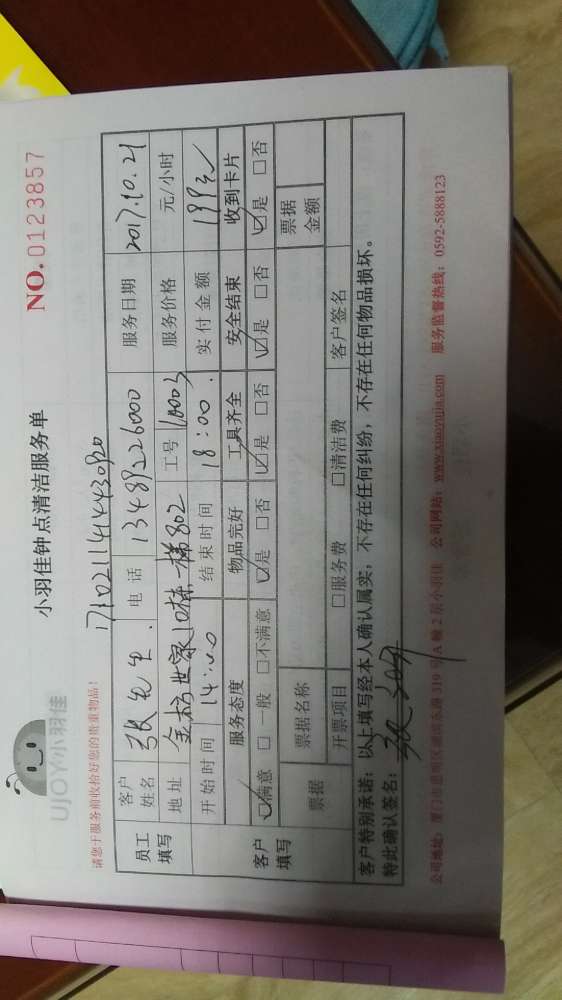 UJOY小羽佳
小羽佳钟点清洁服务单
NO.0123857
请您于服务前收拾好您的贵重物品!
员工填写
客户姓名 张先生. 电话 13489226000 服务日期 2017.10.21
地址 10栋一梯802 工号 10003 服务价格 元/小时
开始时间 14:00 结束时间 18:00. 实付金额 199元
客户填写
服务态度 物品完好 工具齐全 安全结束 收到卡片
☑满意 □一般 □不满意 ☑是 □否 ☑是 □否 ☑是 □否 ☑是 □否
票据 票据名称 票据金额
开票项目 □服务费 □清洁费 客户签名
客户特别承诺:以上填写经本人确认属实,不存在任何纠纷,不存在任何物品损坏。
特此确认签名:
公司地址:厦门市思明区湖滨东路 319 号 A 幢 2 层小羽佳 公司网站:www.xiaoyujia.com 服务监督热线:0592-5888123